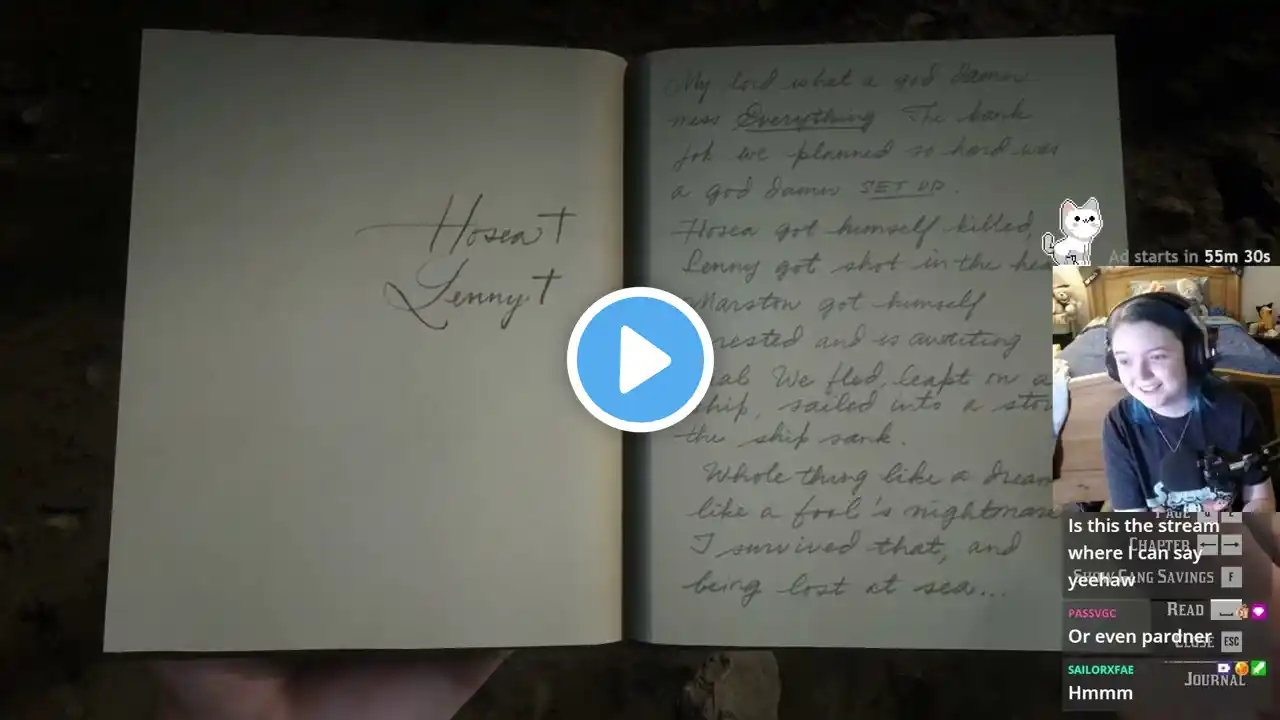 Hosea †
Lenny †
My lord what a god damn
mess Everything The bank
job we planned so hard was
a god damn SET UP.
Hosea got himself killed,
Lenny got shot in the
Marston got himself
and is awaiting
We fled, leapt on a
ship, sailed into a
the ship sank.
Whole thing like a dream
like a fool's nightmare
I survived that, and
being lost at sea...
Ad starts in 55m 30s
Is this the stream
where I can say
yeehaw
PASSVGC
Or even pardner
SAILORXFAE
Hmmm
PAGE
CHAPTER ← →
SHOW GANG SAVINGS F
READ
CLOSE ESC
JOURNAL